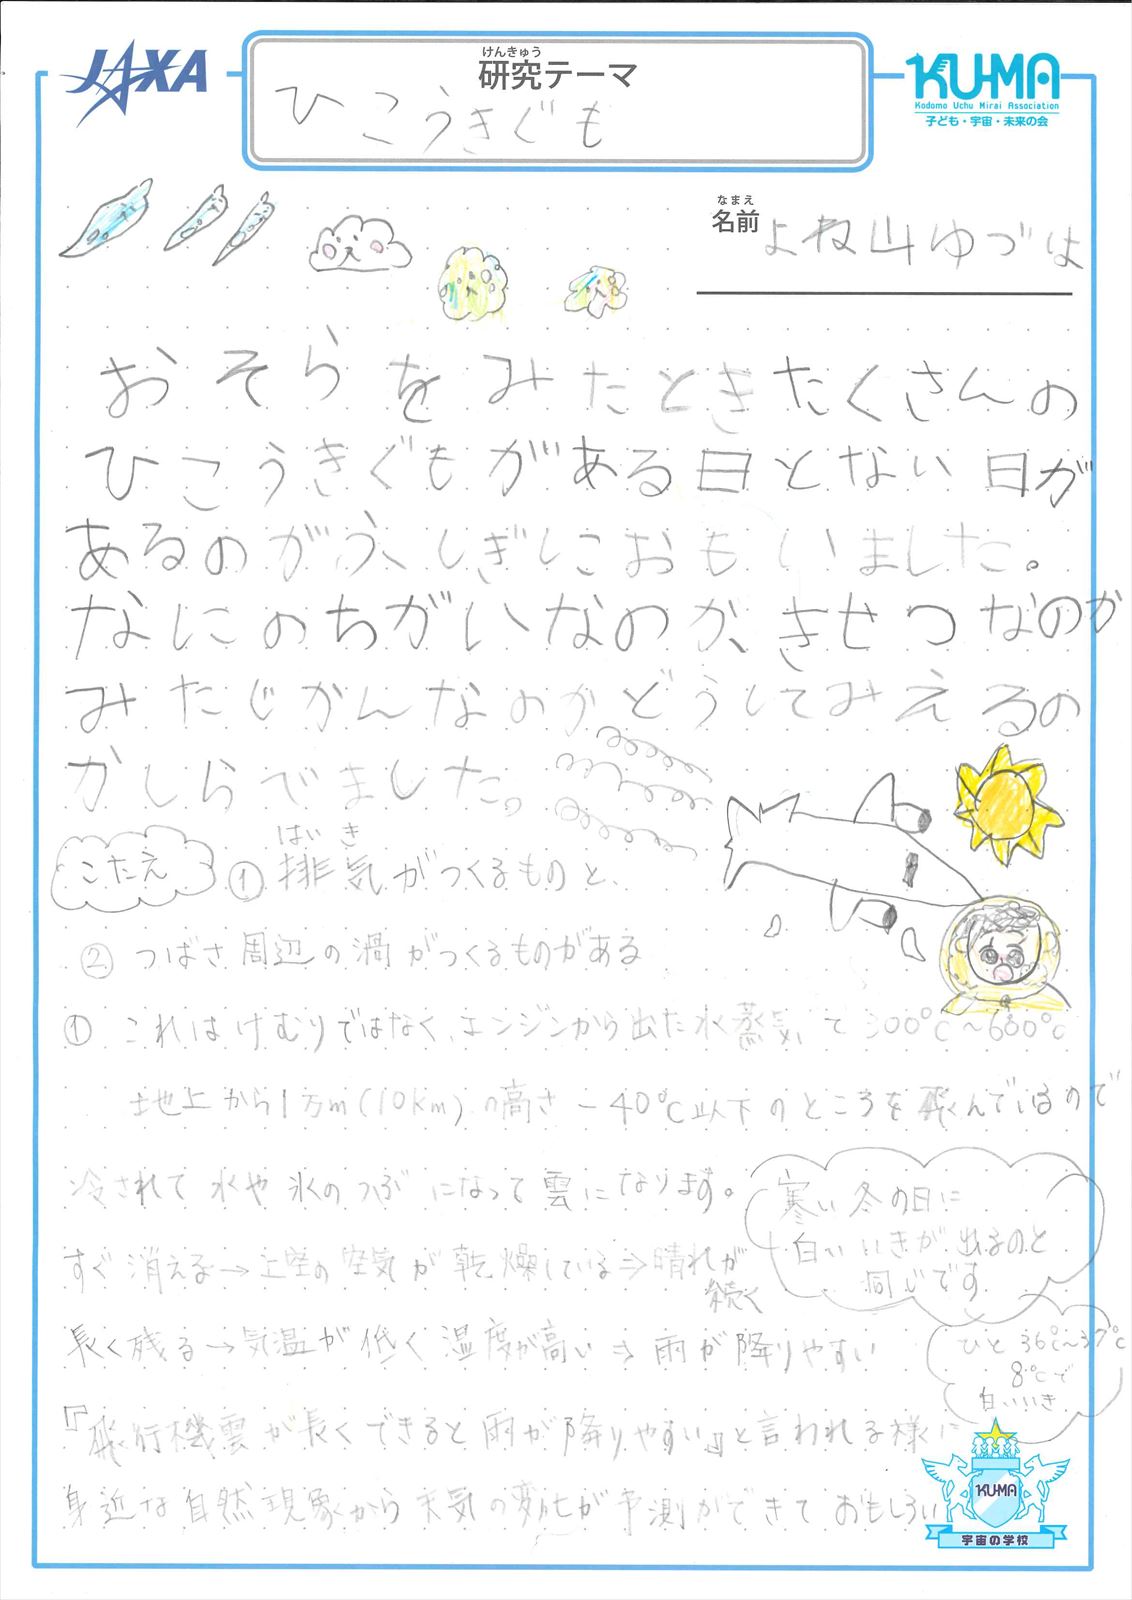 JAXA
けんきゅう
研究テーマ
ひこうきぐも
KU-MA
Kodomo Uchu Mirai Association
子ども・宇宙・未来の会
なまえ
名前 よね山ゆづは
おそらをみたときたくさんの
ひこうきぐもがある日とない日が
あるのがふしぎにおもいました。
なにのちがいなのか、きせつなのか
みたじかんなのかどうしてみえるの
かしらでました。
こたえ
はいき
① 排気がつくるものと、
② つばさ周辺の渦がつくるものがある
① これはけむりではなく、エンジンから出た水蒸気で300℃~600℃
地上から1万m(10km)の高さ -40℃以下のところを飛んでいるので
冷されて水や氷のつぶになって雲になります。
寒い冬の日に
白いいきが出るのと
同じです
すぐ消える→上空の空気が乾燥している⇒晴れが
続く
長く残る→気温が低く湿度が高い⇒雨が降りやすい
ひと36℃~37℃
8℃で
白いいき
『飛行機雲が長くできると雨が降りやすい』と言われる様に
身近な自然現象から天気の変化が予測ができておもしろい
KU-MA
宇宙の学校